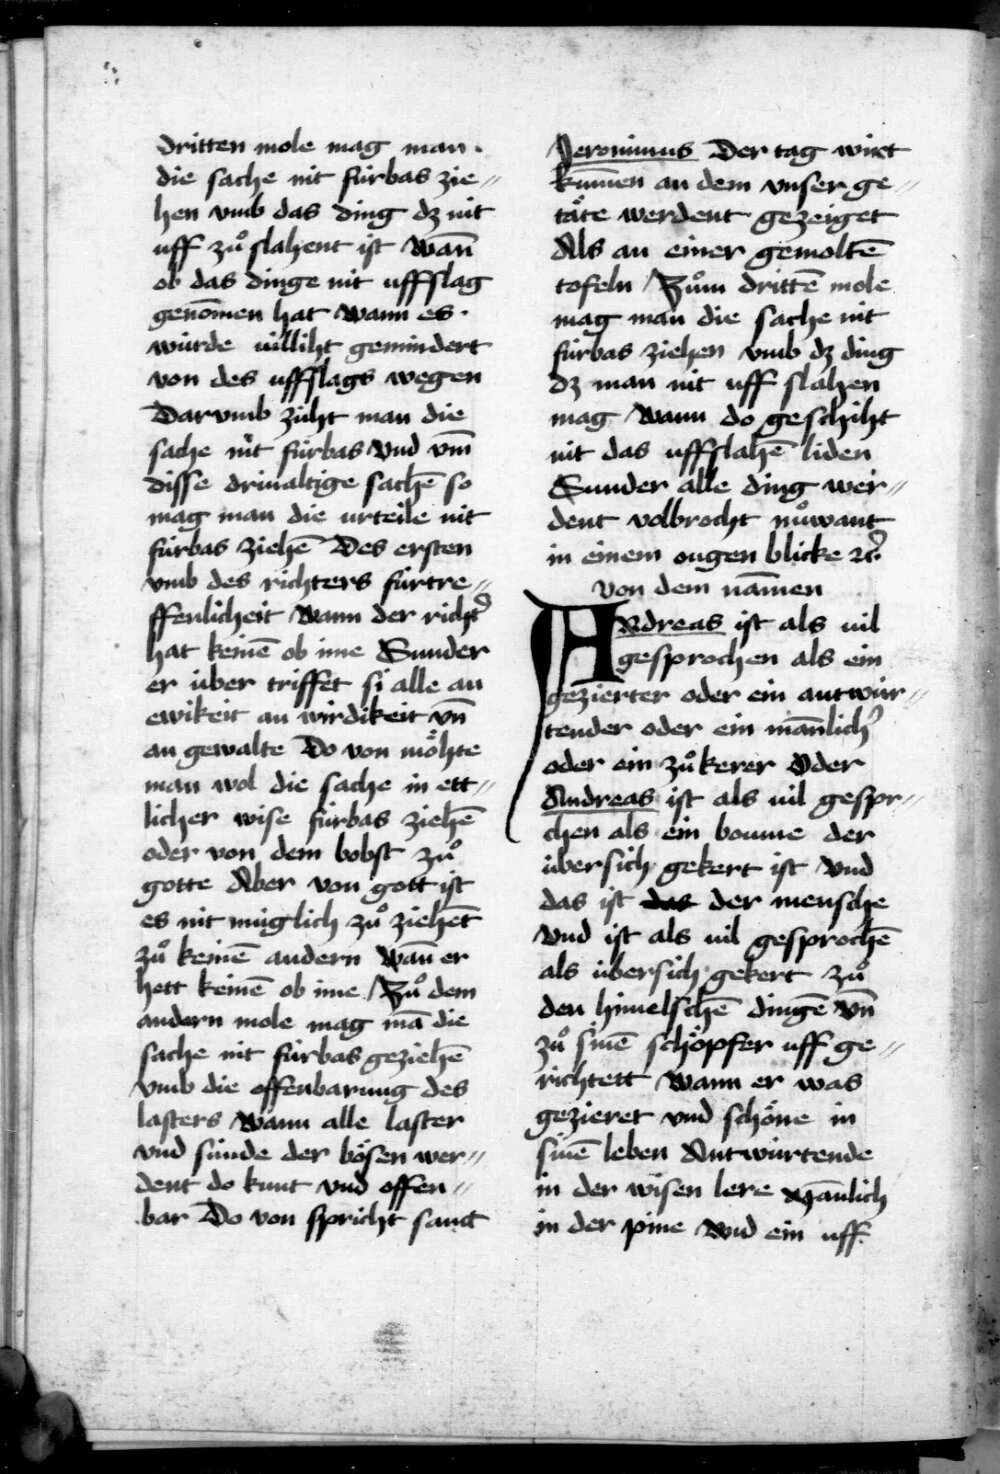 dritten mole mag man
die sache nit fürbas zie„
hen vmb das ding dz nit
uff zuͦ slahent ist Wañ
ob das dinge nit uffslag
genōmen hat Wann es
würde villiht gemindert
von des uffslags wegen
Darvmb züht man die
sache nit fürbas Vnd vm̄
disse drinaltige sachē so
mag man die urteile nit
fürbas ziehē Des ersten
vmb des richters fürtre„
ffenlicheit Wann der richt᾽
hat keinē ob ime Sunder
er über triffet si alle an
ewikeit an wirdikeit vn̄
an gewalte Do von möhte
man wol die sache in ett„
licher wise fürbas ziehē
oder von dem bobst zuͦ
gotte Aber von gott ist
es nit müglich zuͦ ziehēt
zuͦ keinē andern Wañ er
hett keinē ob ime / Zuͦ dem
andern mole mag mā die
sache nit fürbas geziehē
Vmb die offenbarung des
lasters Wann alle laster
vnd sünde der bösen wer„
dent do kunt vnd offen„
bar Do von spricht sanct
Jeronimus Der tag wirt
kum̄en an dem vnser ge„
täte werdent gezeiget
Als an einer gemoltē
tofeln / Zuͦm drittē mole
mag man die sache nit
fürbas ziehen vmb dz ding
dz man nit uff slahen
mag Wann do geschiht
nit das uffslahē liden
Sunder alle ding wer„
dent volbrocht nuͦwant
in einem ougen blicke ꝛc᾽
von dem nam̄en
ANdreas ist als uil
gesprochen als ein
gezierter oder ein antwür„
tender oder ein mānlich᾽
oder ein zuͦkerer Oder
Andreas ist als uil gespr„
chen als ein boume der
übersich gekert ist Vnd
das ist das der mensche
Vnd ist als uil gesprochē
als übersich gekert zuͦ
den himelschē dingē vn̄
zuͦ sinē schöpfer uff ge„
richtett Wann er was
gezieret vnd schöne in
sinē leben Antwürtende
in der wisen lere Mānlich
in der pine Vnd ein uff